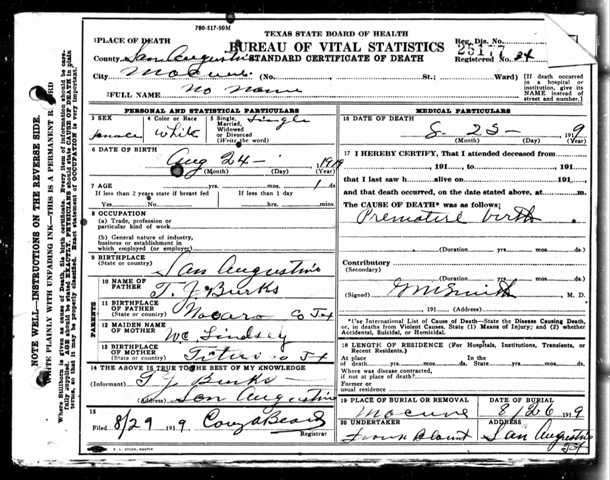 780-517-50M
TEXAS STATE BOARD OF HEALTH
BUREAU OF VITAL STATISTICS
STANDARD CERTIFICATE OF DEATH
Reg. Dis. No.
25177
Registered No. 24
1 PLACE OF DEATH
County San Augustine
City (No. St.: Ward)
[If death occurred in a hospital or institution, give its NAME instead of street and number.]
2 FULL NAME No Name
PERSONAL AND STATISTICAL PARTICULARS
3 SEX
4 Color or Race White
5 Single, Married, Widowed or Divorced (Write the word) Single
6 DATE OF BIRTH
Aug 24 - 1919
(Month) (Day) (Year)
7 AGE 1 ds
If less than 2 years state if breast fed
If less than 1 day
Yes No hrs. mins
8 OCCUPATION
(a) Trade, profession or particular kind of work
(b) General nature of industry, business or establishment in which employed (or employer)
9 BIRTHPLACE
(State or country) San Augustine
PARENTS
10 NAME OF FATHER T. J. Burks
11 BIRTHPLACE OF FATHER
(State or country) Co Tex
12 MAIDEN NAME OF MOTHER Lindsey
13 BIRTHPLACE OF MOTHER
(State or country) Co Tx
14 THE ABOVE IS TRUE TO THE BEST OF MY KNOWLEDGE
(Informant) T J Burks
(Address) San Augustine
15
Filed 8/29 1919
Registrar
MEDICAL PARTICULARS
16 DATE OF DEATH
8 - 25 - 1919
(Month) (Day) (Year)
17 I HEREBY CERTIFY, That I attended deceased from
191 , to 191 ,
that I last saw h alive on 191 ,
and that death occurred, on the date stated above, at m.
The CAUSE OF DEATH* was as follows:
Premature birth
(Duration) yrs. mos. ds.
Contributory
(Secondary)
(Duration) yrs. mos. ds.
(Signed) M. D.
191 (Address)
*Use International List of Cause of Death—State the Disease Causing Death, or, in deaths from Violent Causes, State (1) Means of Injury; and (2) whether Accidental, Suicidal, or Homicidal.
18 LENGTH OF RESIDENCE (For Hospitals, Institutions, Transients, or Recent Residents.)
At place of death yrs. mos. ds. In the State yrs. mos. ds.
Where was disease contracted, if not at place of death?
Former or usual residence
19 PLACE OF BURIAL OR REMOVAL
DATE OF BURIAL
8/26 1919
20 UNDERTAKER
Frank Blount
ADDRESS
San Augustine
Tex
NOTE WELL—INSTRUCTIONS ON THE REVERSE SIDE.
WRITE PLAINLY WITH UNFADING INK—THIS IS A PERMANENT